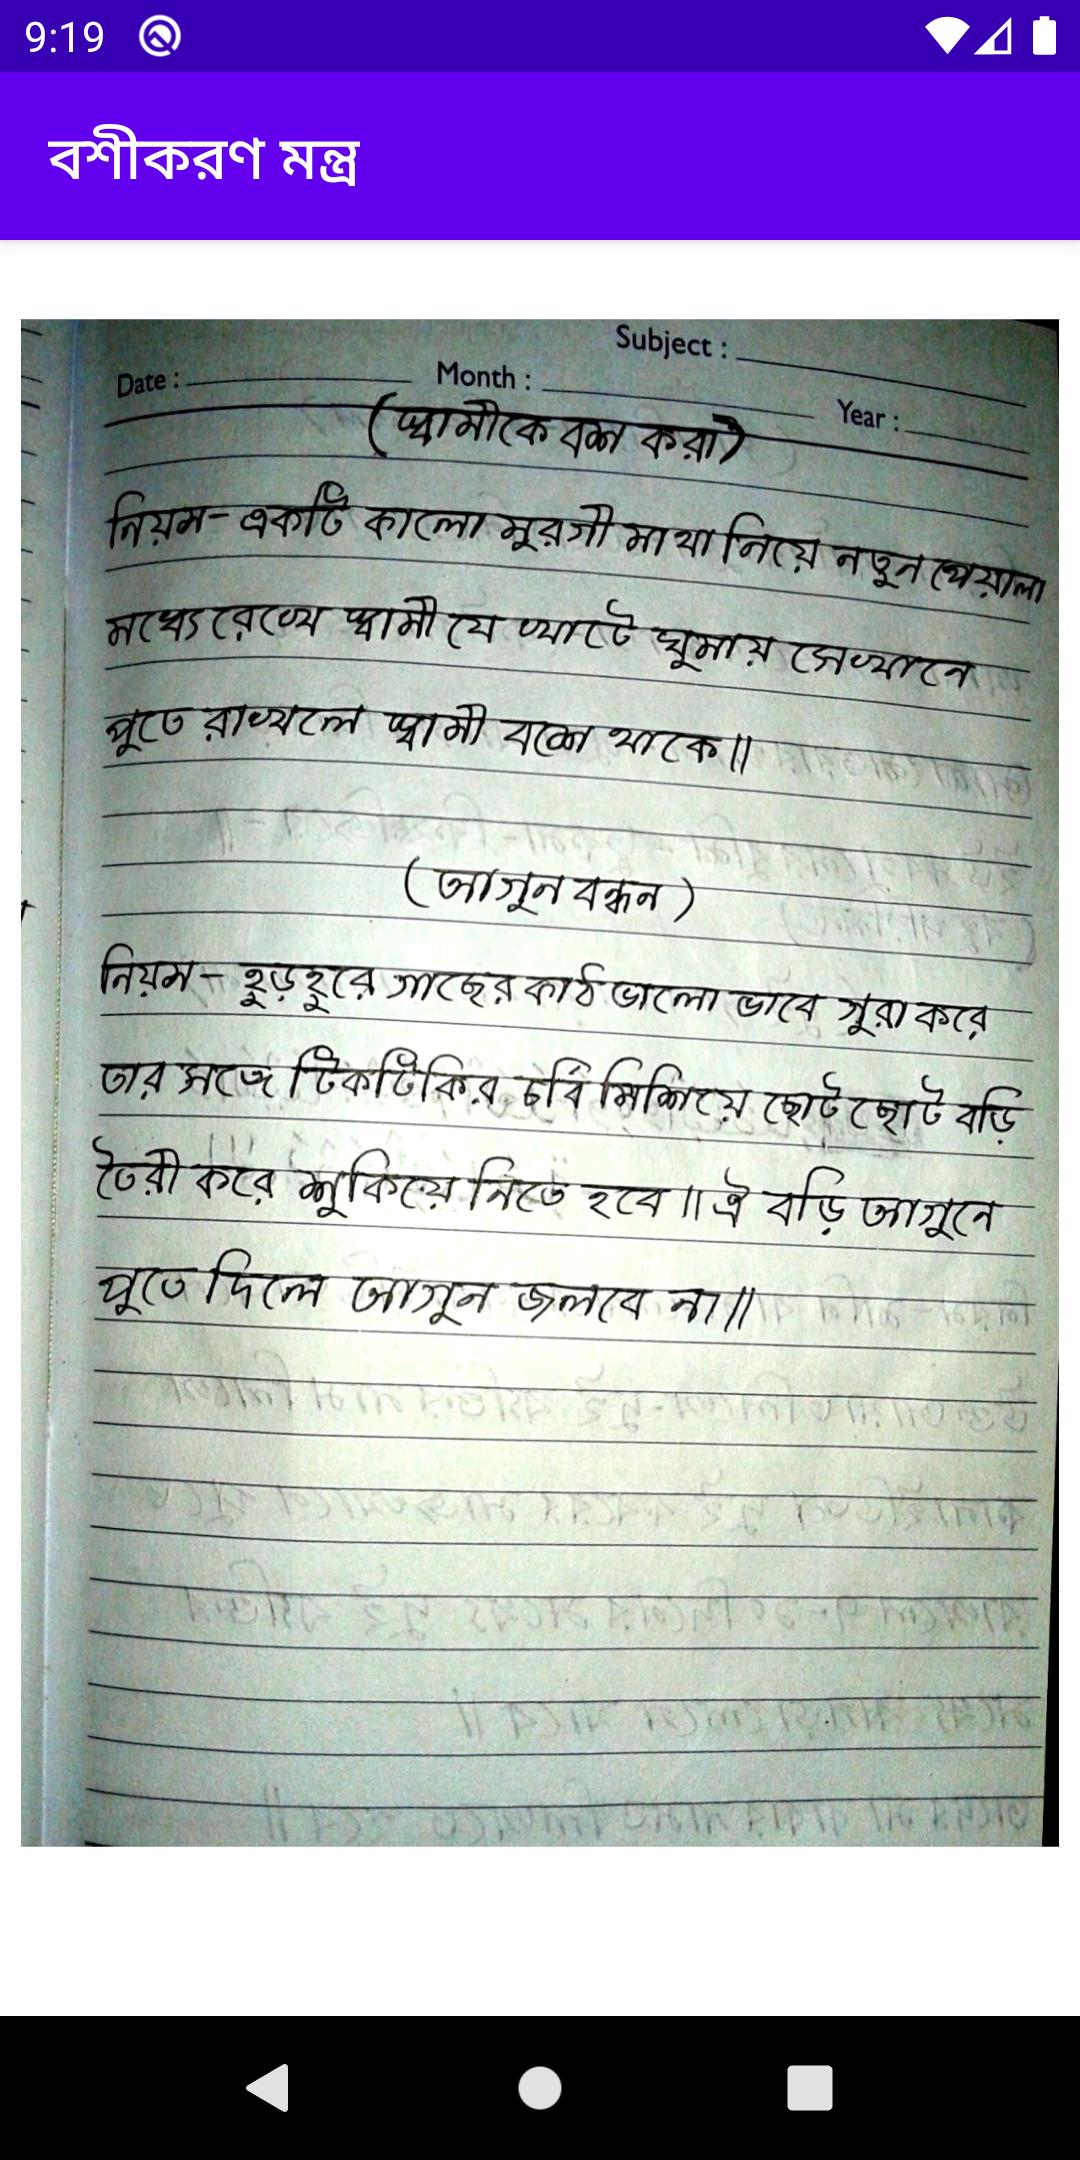 9:19
বশীকরণ মন্ত্র
Subject :
Date : Month : Year :
(স্বামীকে বশ করা)
নিয়ম- একটি কালো মুরগী মাথা নিয়ে নতুন পেয়ালা
মধ্যে রেখে স্বামী যে খাটে ঘুমায় সেখানে
পুতে রাখলে স্বামী বশে থাকে॥
(আগুন বন্ধন)
নিয়ম - হুড়হুরে গাছের কাঠ ভালো ভাবে গুরা করে
তার সঙ্গে টিকটিকির চর্বি মিশিয়ে ছোট ছোট বড়ি
তৈরী করে শুকিয়ে নিতে হবে॥ ঐ বড়ি আগুনে
পুতে দিলে আগুন জলবে না॥